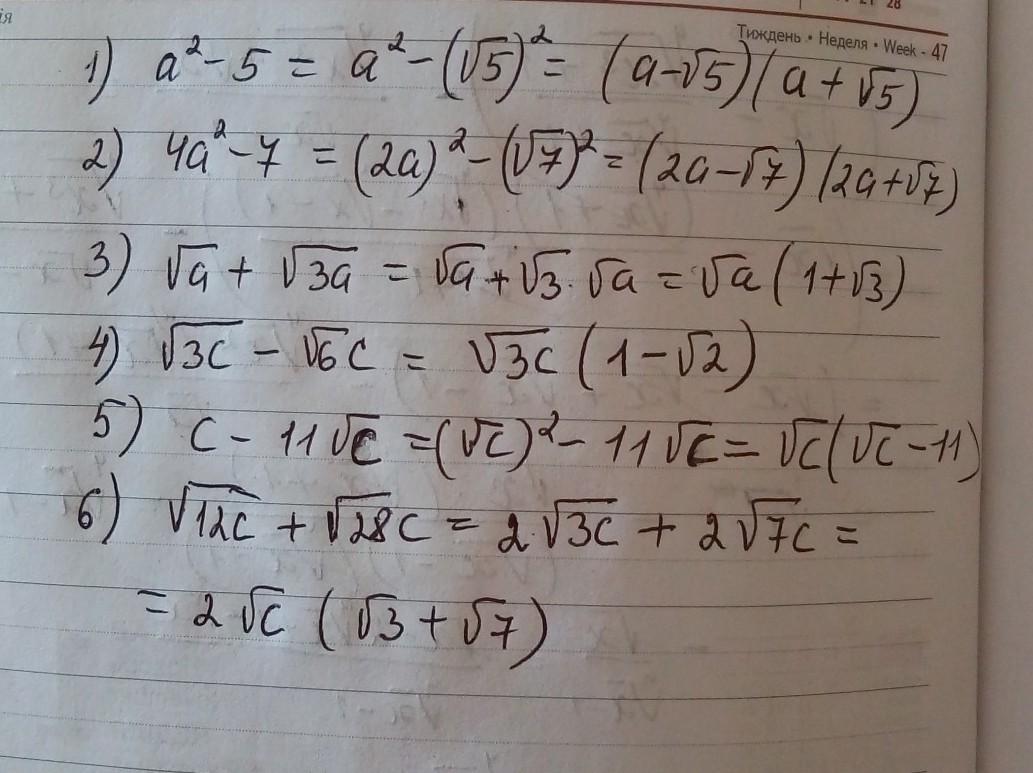 ія
28
Тиждень • Неделя • Week - 47
1) a² - 5 = a² - (√5)² = (a-√5)(a + √5)
2) 4a² - 7 = (2a)² - (√7)² = (2a-√7)(2a+√7)
3) √a + √3a = √a + √3 · √a = √a (1+√3)
4) √3c - √6c = √3c (1-√2)
5) c - 11√c = (√c)² - 11√c = √c(√c - 11)
6) √12c + √28c = 2√3c + 2√7c =
= 2√c (√3 + √7)